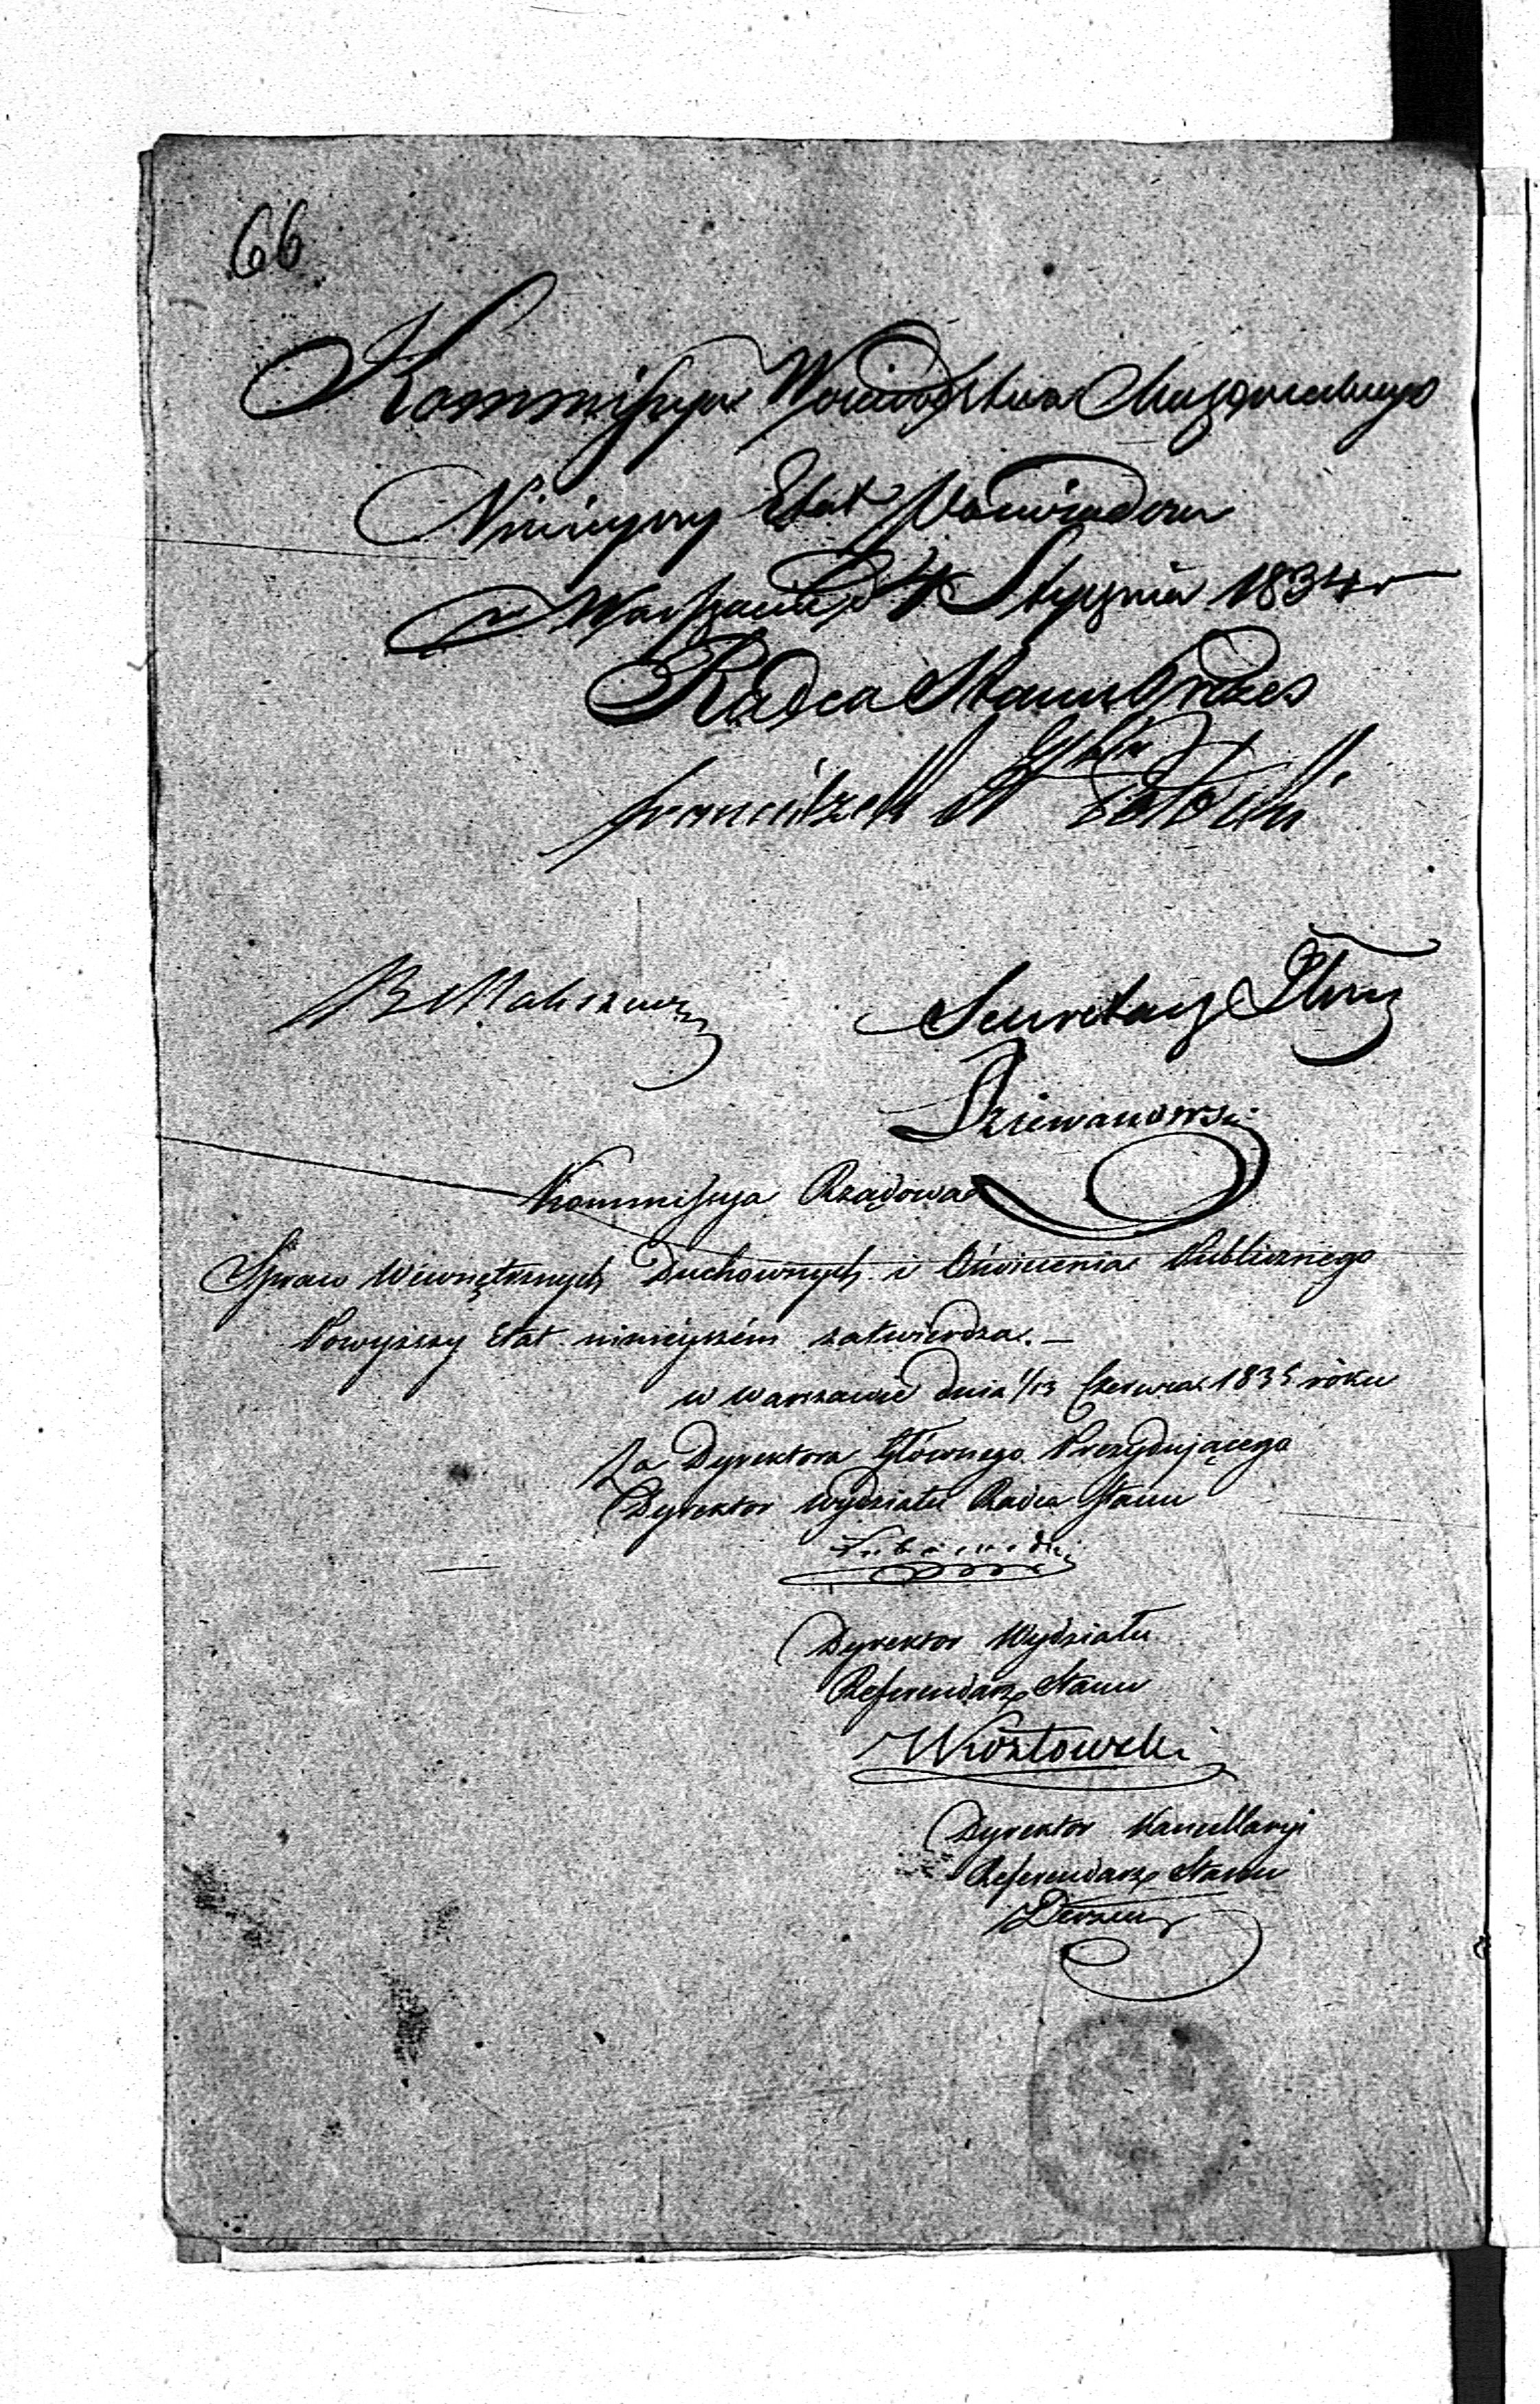 66
Kommissya Województwa Mazowieckiego
Ninieyszy Etat Poświadcza
w Warszawie d 4 Stycznia 1834 r
Radca Stanu Prezes
Franciszek Potocki
Sekretarz Jlny
Dziewanowski
Kommissya Rządowa
Spraw Wewnętrznych Duchownych i Oświecenia Publicznego
Powyższy Etat ninieyszém zatwierdza. —
w Warszawie dnia 1/13 Czerwca 1835 roku
Za Dyrektora Głównego Prezydującego
Dyrektor Wydziału Radca Stanu
Dyrektor Wydziału
Referendarz Stanu
Kozłowski
Dyrektor Kancellaryi
Referendarz Stanu